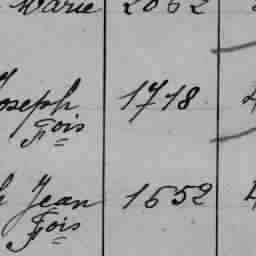 Marie 2062
Joseph 1718
Fois
Jean 1652
Fois